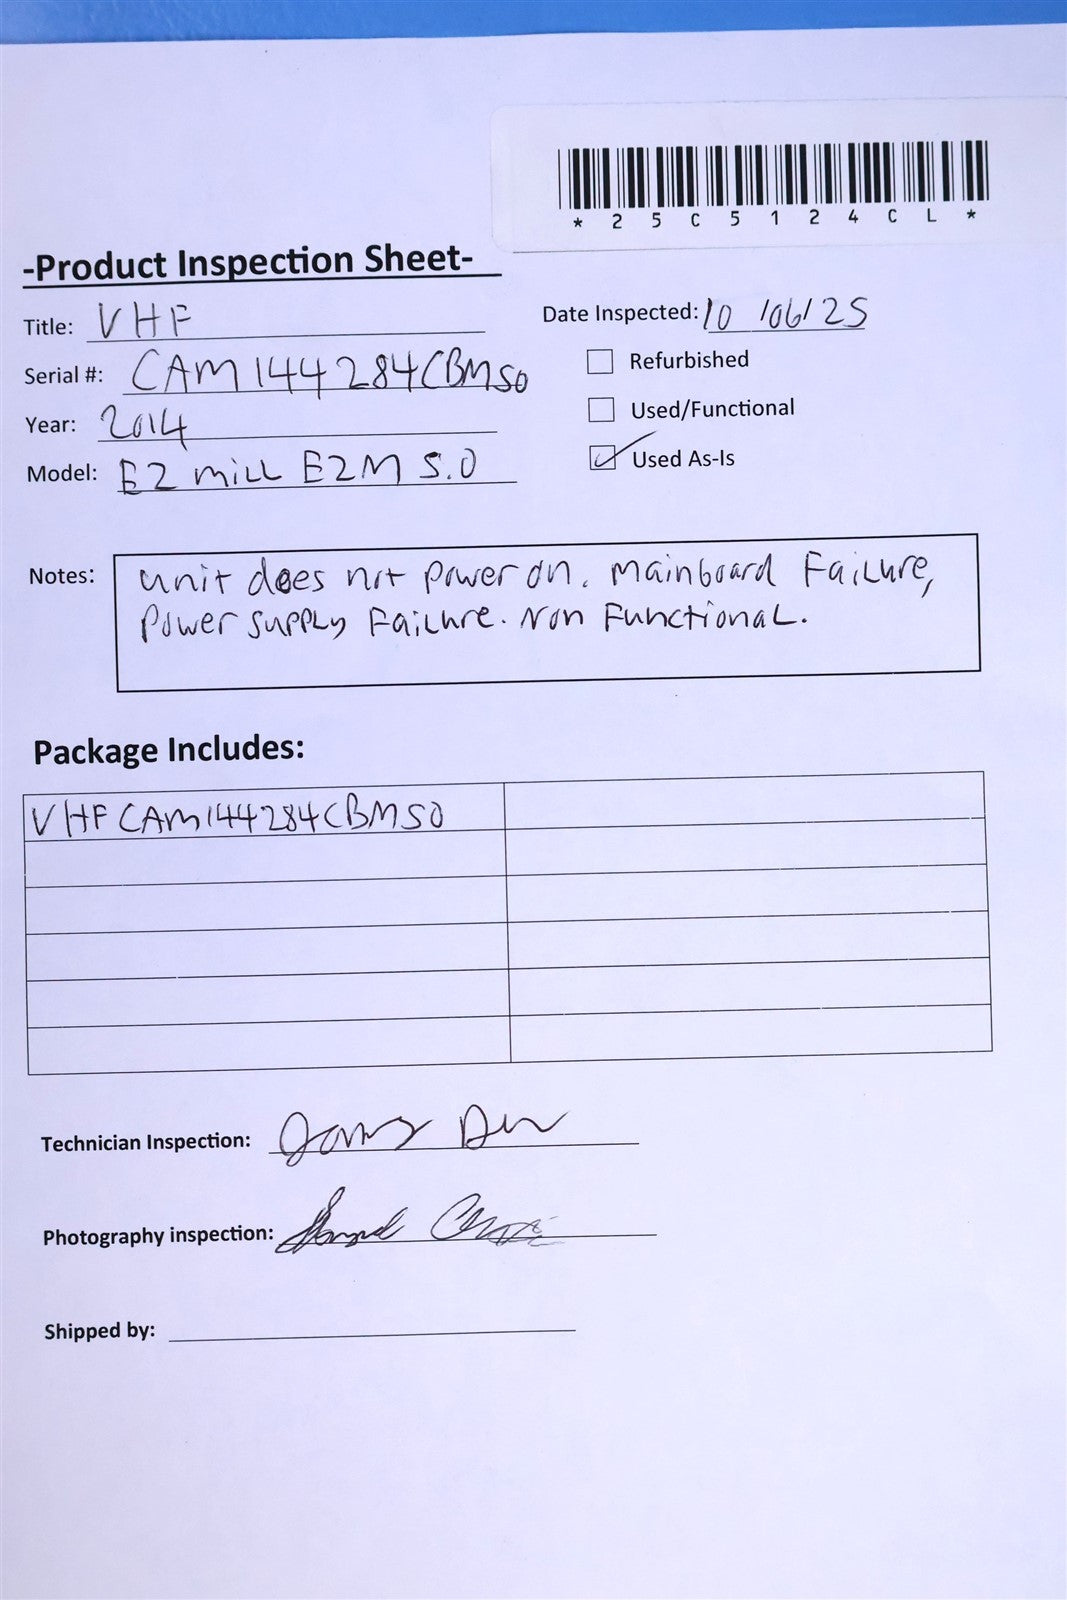 *25C5124CL*
-Product Inspection Sheet-
Title: VHF
Date Inspected: 10/06/25
Serial #: CAM144284CBM50
Refurbished
Year: 2014
Used/Functional
Model: EZ mill EZM 5.0
Used As-Is
Notes: unit does not power on. Mainboard Failure,
Power Supply Failure. Non Functional.
Package Includes:
VHF CAM144284CBM50
Technician Inspection:
Photography inspection:
Shipped by: